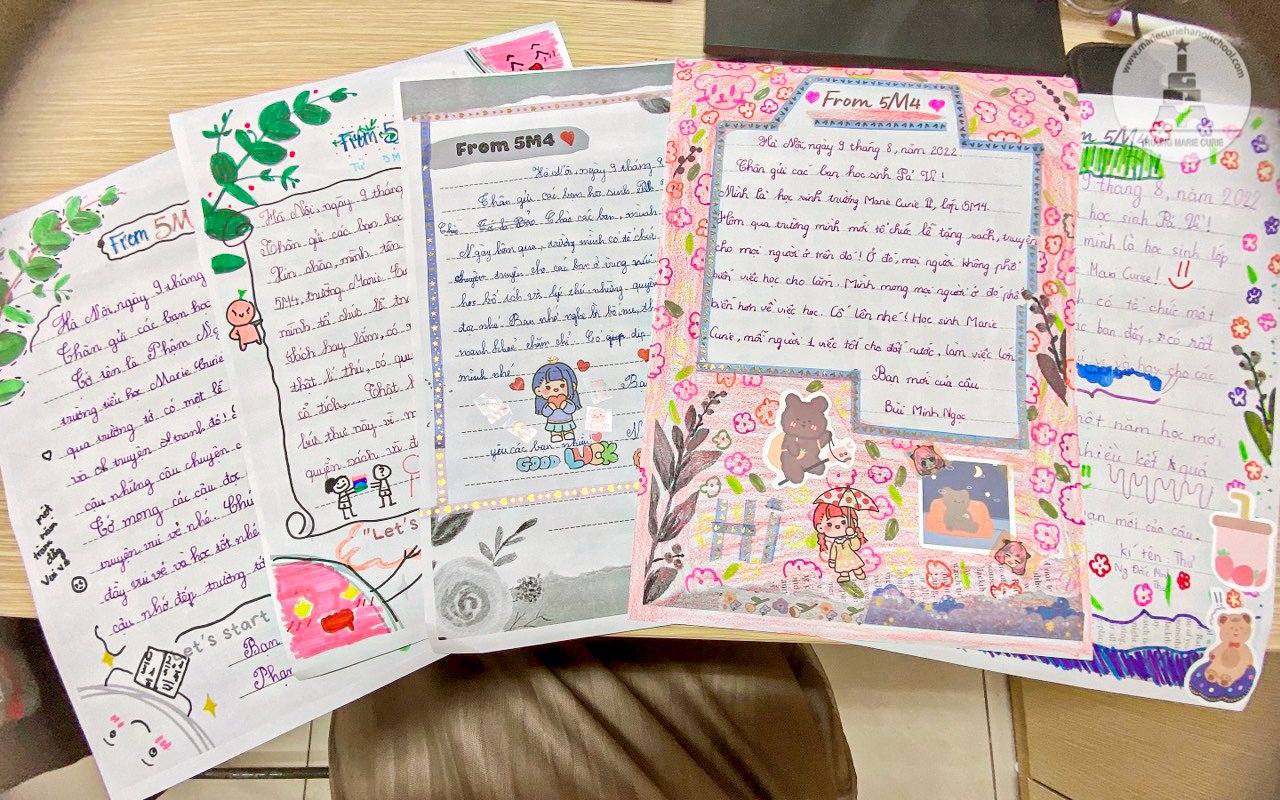 From 5M
Hà Nội, ngày 9 tháng
Thân gửi các bạn học
Tớ tên là Phạm
trường tiểu học Marie Curie
qua trường tớ có một lễ
và truyện tranh đó!
câu những câu chuyện
Tớ mong các cậu đọc
truyện vui vẻ nhé. Chú
đầy vui vẻ và học tốt nhé
cậu nhớ đẹp trường tớ
một năm tràn đầy vui vẻ
Let's start
Bạn
Phạm
From 5
Từ 5M
Hà Nội, ngày 9 tháng
Thân gửi các bạn học
Xin chào, mình tên
5M4, trường Marie Cu
mình tổ chức lễ tr
Sách hay lắm, có
thật lí thú, có qu
cổ tích,... Thật
bức thư này về m
quyển sách và đ
"Let's
From 5M4
Hà Nội, ngày 9 tháng 9
Thân gửi các bạn học sinh Pả
Chào các bạn, mình
Ngày hôm qua, trường mình có tổ chức
truyện cho các bạn ở vùng núi
học bổ ích và lý thú những quyển
đọc nhé. Bạn nhớ nghe lời bố mẹ, th
mạnh khoẻ chăm chỉ. Có dịp
mình nhé
Bạn
yêu các bạn nhiều
GOOD LUCK
From 5M4
Hà Nội, ngày 9 tháng 8, năm 2022
Thân gửi các bạn học sinh Pả Vi!
Mình là học sinh trường Marie Curie, lớp 5M4.
Hôm qua trường mình mới tổ chức lễ tặng sách, truyện
cho mọi người ở trên đó! Ở đó, mọi người không phải
buồn việc học cho lắm. Mình mong mọi người ở đó phổ
biến hơn về việc học. Cố lên nhé! Học sinh Marie
Curie, mỗi người 1 việc tốt cho đất nước, làm việc lớn
Bạn mới của cậu
Bùi Minh Ngọc
HI
5M4
9 tháng 8, năm 2022
học sinh Pả Vi!
mình là học sinh lớp
Marie Curie!
có tổ chức một
bạn đấy, có rất
cho các
một năm học mới
nhiều kết quả
bạn mới của cậu.
kí tên Thư
www.mariecuriehanoischool.com
TRƯỜNG MARIE CURIE